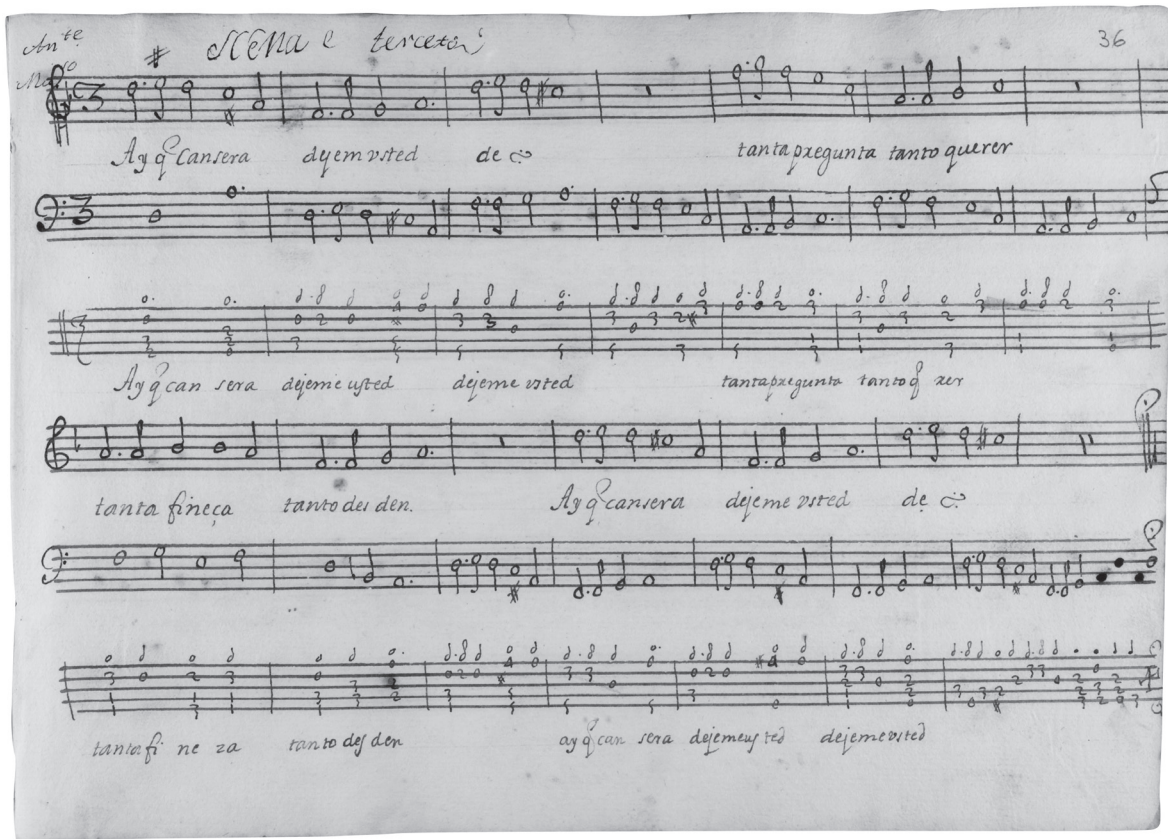 An.te
36
Ay q̃ Cansera dejem usted de
tanta pregunta tanto querer
Ay q̃ can sera dejeme usted dejeme usted tanta pregunta tanto q̃ rer
tanta fineça tanto desden. Ay q̃ cansera dejeme usted de
tanta fi ne za tanto desden ay q̃ can sera dejemeus ted dejeme usted